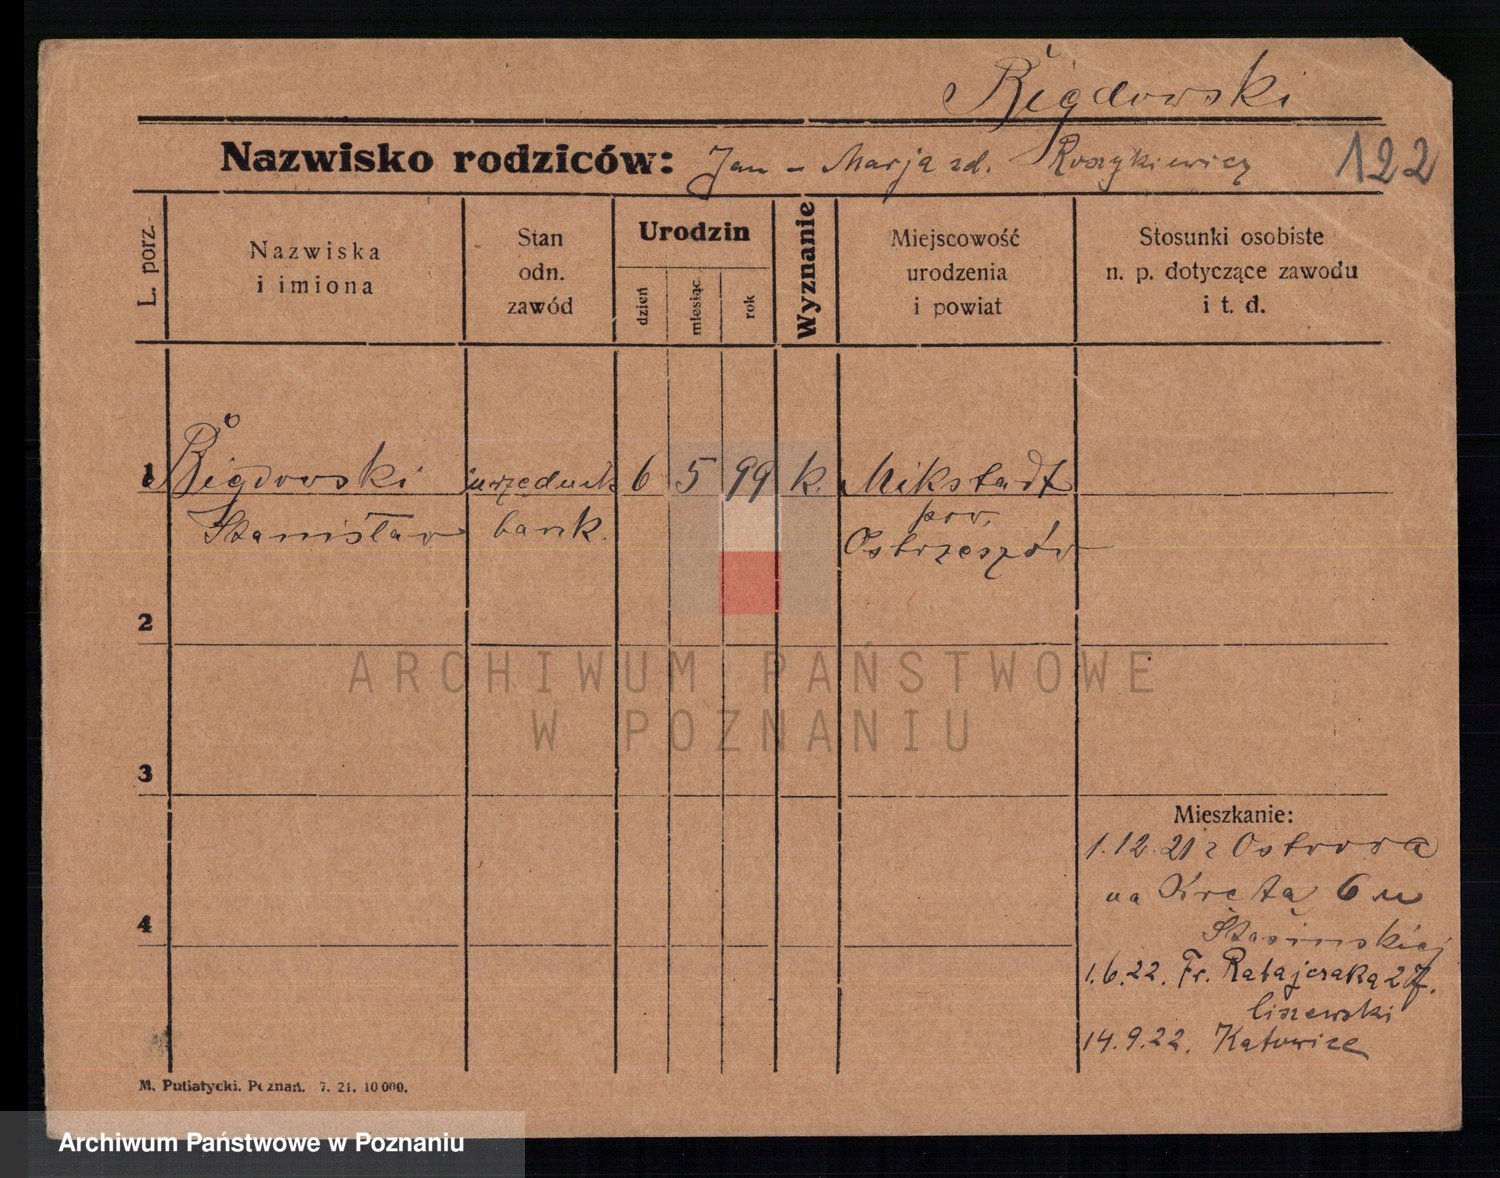 Bigdowski
Nazwisko rodziców: Jan - Marja zd. Roszykiewicz
122
L. porz.
Nazwiska
i imiona
Stan
odn.
zawód
Urodzin
dzień
miesiąc
rok
Wyznanie
Miejscowość
urodzenia
i powiat
Stosunki osobiste
n. p. dotyczące zawodu
i t. d.
1 Bigdowski urzędnik 6 5 99 k. Mikstadt
Stanisław bank. pow.
Ostrzeszów
2
ARCHIWUM PAŃSTWOWE
W POZNANIU
3
Mieszkanie:
1.12.21 z Ostrowa
na Kręta 6 u
1.6.22. Fr. Ratajczaka
14.9.22. Katowice
4
M. Putiatycki. Poznań. 7. 21. 10 000.
Archiwum Państwowe w Poznaniu